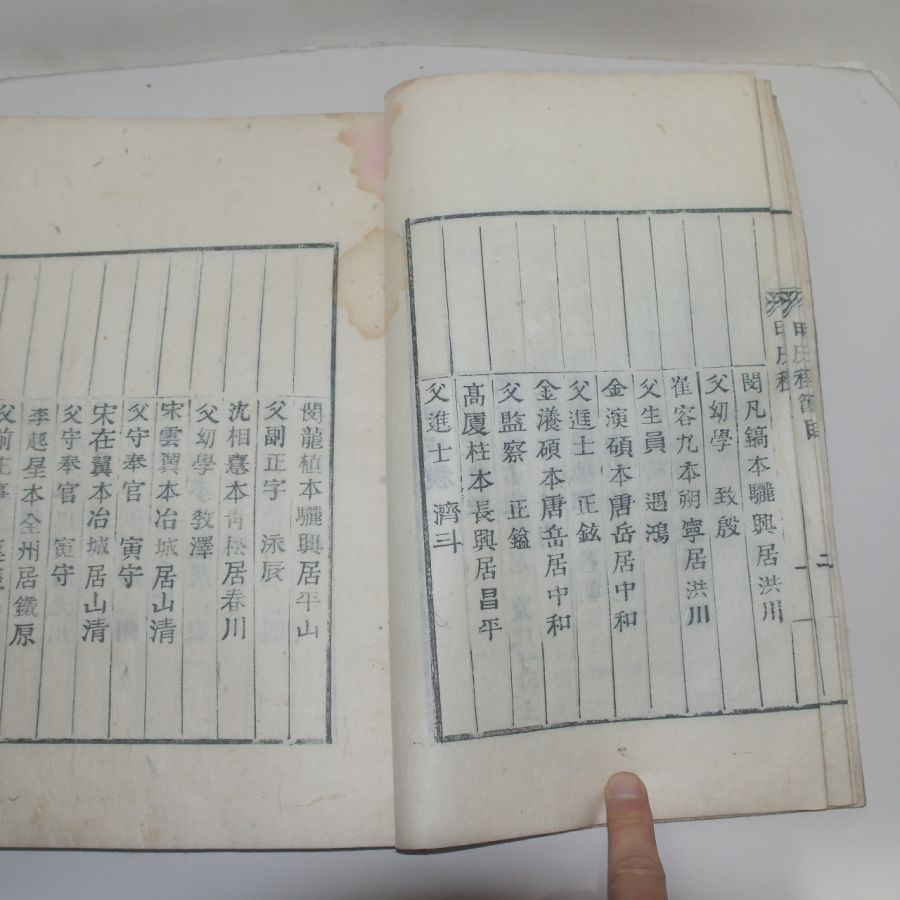 閔凡鎬本驪興居洪川
父幼學 致殷
崔容九本朔寧居洪川
父生員 遇鴻
金演碩本唐岳居中和
父進士 正鉉
金瀁碩本唐岳居中和
父監察 正鎰
高廈柱本長興居昌平
父進士 濟斗
閔龍植本驪興居平山
父副正字 泳辰
沈相憙本靑松居春川
父幼學 敎澤
宋雲翼本冶城居山清
父守奉官 寅守
宋在翼本冶城居山清
父守奉官 寅守
李起星本全州居鐵原
父前主事
二